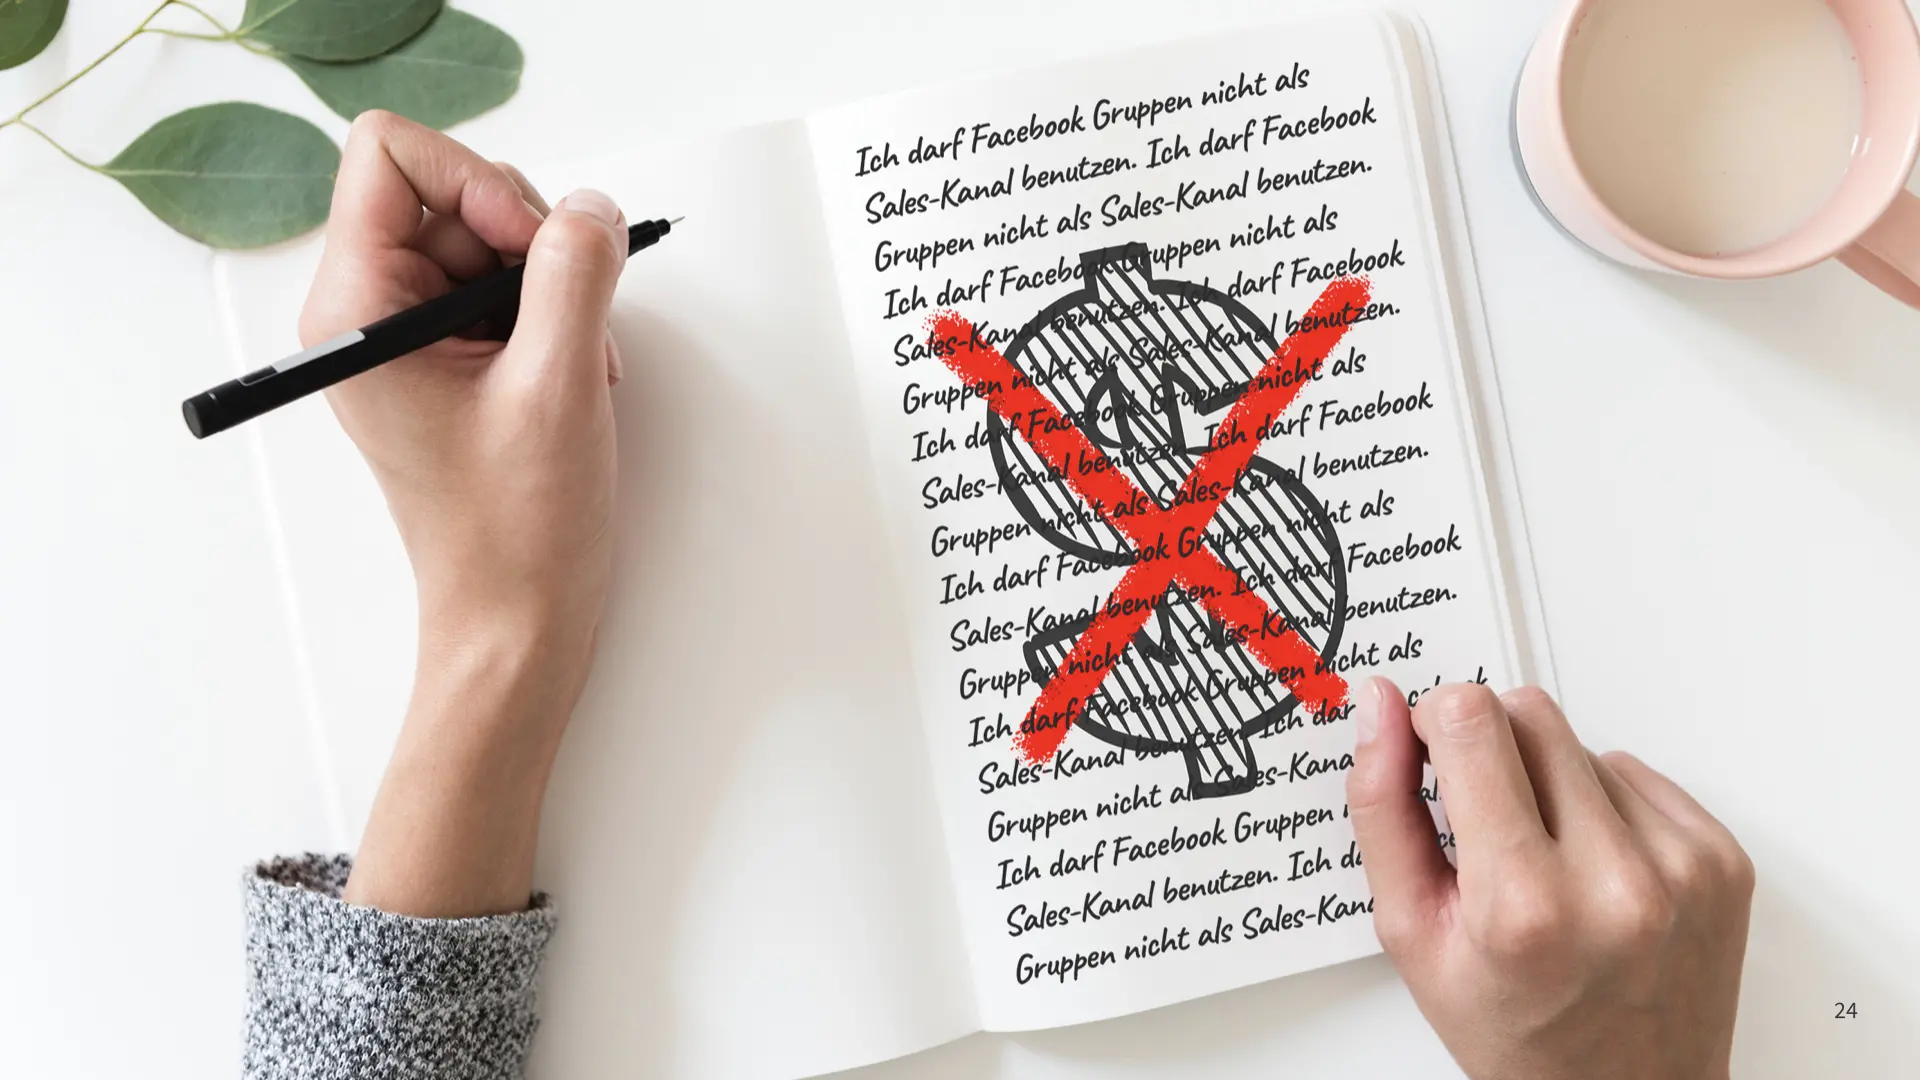 Ich darf Facebook Gruppen nicht als
Sales-Kanal benutzen. Ich darf Facebook
Gruppen nicht als Sales-Kanal benutzen.
Ich darf Facebook Gruppen nicht als
Sales-Kanal benutzen. Ich darf Facebook
Gruppen nicht als Sales-Kanal benutzen.
Ich darf Facebook Gruppen nicht als
Sales-Kanal benutzen. Ich darf Facebook
Gruppen nicht als Sales-Kanal benutzen.
Ich darf Facebook Gruppen nicht als
Sales-Kanal benutzen. Ich darf Facebook
Gruppen nicht als Sales-Kanal benutzen.
Ich darf Facebook Gruppen nicht als
Sales-Kanal benutzen. Ich dar
Gruppen nicht als Sales-Kana
Ich darf Facebook Gruppen
Sales-Kanal benutzen. Ich
Gruppen nicht als Sales-Kana
24